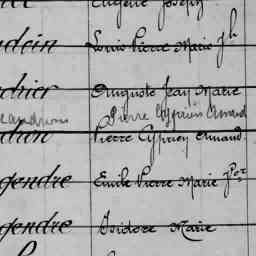 Eugène Joseph
Louis Pierre Marie Jh
drier Auguste Jean Marie
Pierre Cyprien Armand
Pierre Cyprien Armand
gendre Emile Pierre Marie Jph
gendre Isidore Marie